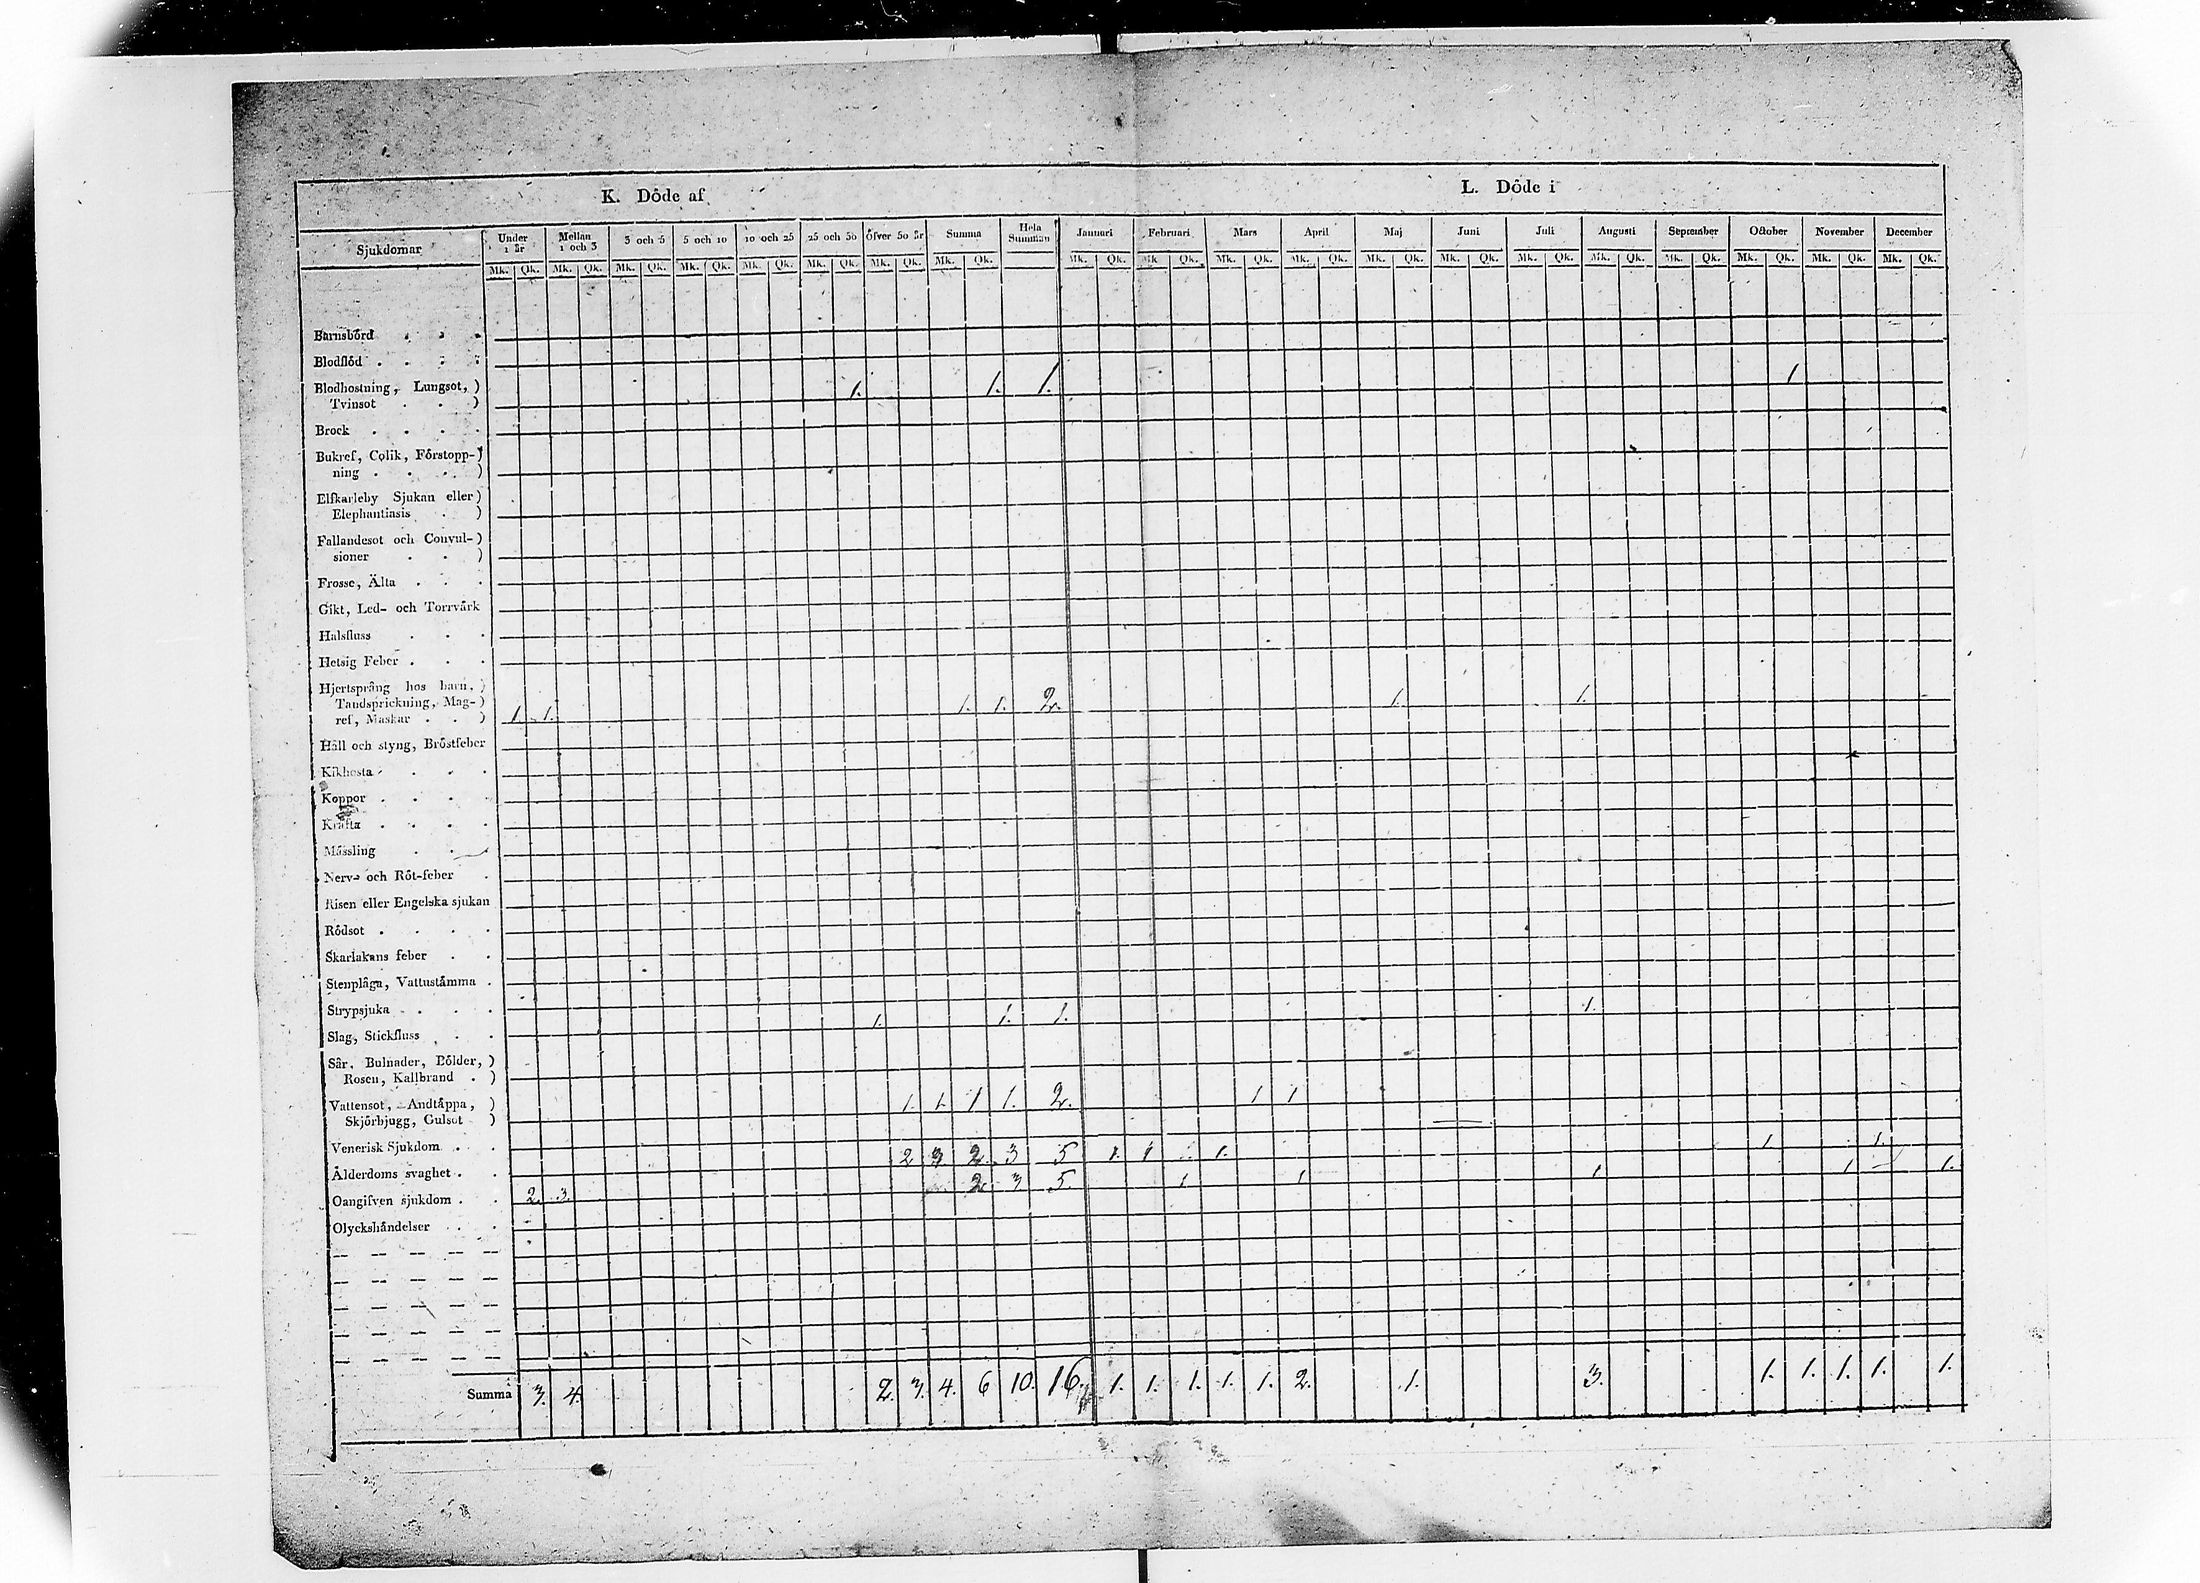 K. Döde af L. Döde i
Sjukdomar Under 1 år Mellan 1 och 3 3 och 5 5 och 10 10 och 25 25 och 50 öfver 50 år Summa Hela Summan Januari Februari Mars April Maj Juni Juli Augusti September October November December
Mk. Qk. Mk. Qk. Mk. Qk. Mk. Qk. Mk. Qk. Mk. Qk. Mk. Qk. Mk. Qk. Mk. Qk. Mk. Qk. Mk. Qk. Mk. Qk. Mk. Qk. Mk. Qk. Mk. Qk. Mk. Qk. Mk. Qk. Mk. Qk. Mk. Qk. Mk. Qk.
Barnsbörd . . .
Blodflöd . . . .
Blodhostning, Lungsot, ) 1. 1. 1. 1
Tvinsot . . )
Brock . . . .
Bukref, Colik, Förstopp-)
ning . . . . )
Elfkarleby Sjukan eller)
Elephantiasis . )
Fallandesot och Convul-)
sioner . . )
Frosse, Älta . . .
Gikt, Led- och Torrvärk
Halsfluss . . .
Hetsig Feber . . .
Hjertsprång hos barn, )
Tandsprickning, Mag-) 1. 1. 2. 1. 1.
ref, Maskar . . ) 1. 1.
Håll och styng, Bröstfeber
Kikhosta . . .
Koppor . . . .
Kräfta . . . .
Mässling . . .
Nerv- och Röt-feber .
Risen eller Engelska sjukan
Rödsot . . . .
Skarlakans feber . .
Stenplåga, Vattustämma .
Strypsjuka . . . 1. 1. 1. 1.
Slag, Stickfluss . .
Sår, Bulnader, Bölder, )
Rosen, Kallbrand . )
Vattensot, Andtäppa, ) 1. 1. 1 1. 2. 1 1
Skjörbjugg, Gulsot )
Venerisk Sjukdom . . 2 3 2. 3 5 1. 1 1. 1 1.
Ålderdoms svaghet . . 2 3 5 1 1 1 1 1.
Oangifven sjukdom . . 2. 3.
Olyckshändelser . .
-- -- -- -- --
-- -- -- -- --
-- -- -- -- --
-- -- -- -- --
-- -- -- -- --
Summa 3. 4. 2. 3. 4. 6 10. 16. 1. 1. 1. 1. 1. 2. 1. 3. 1. 1. 1. 1. 1.